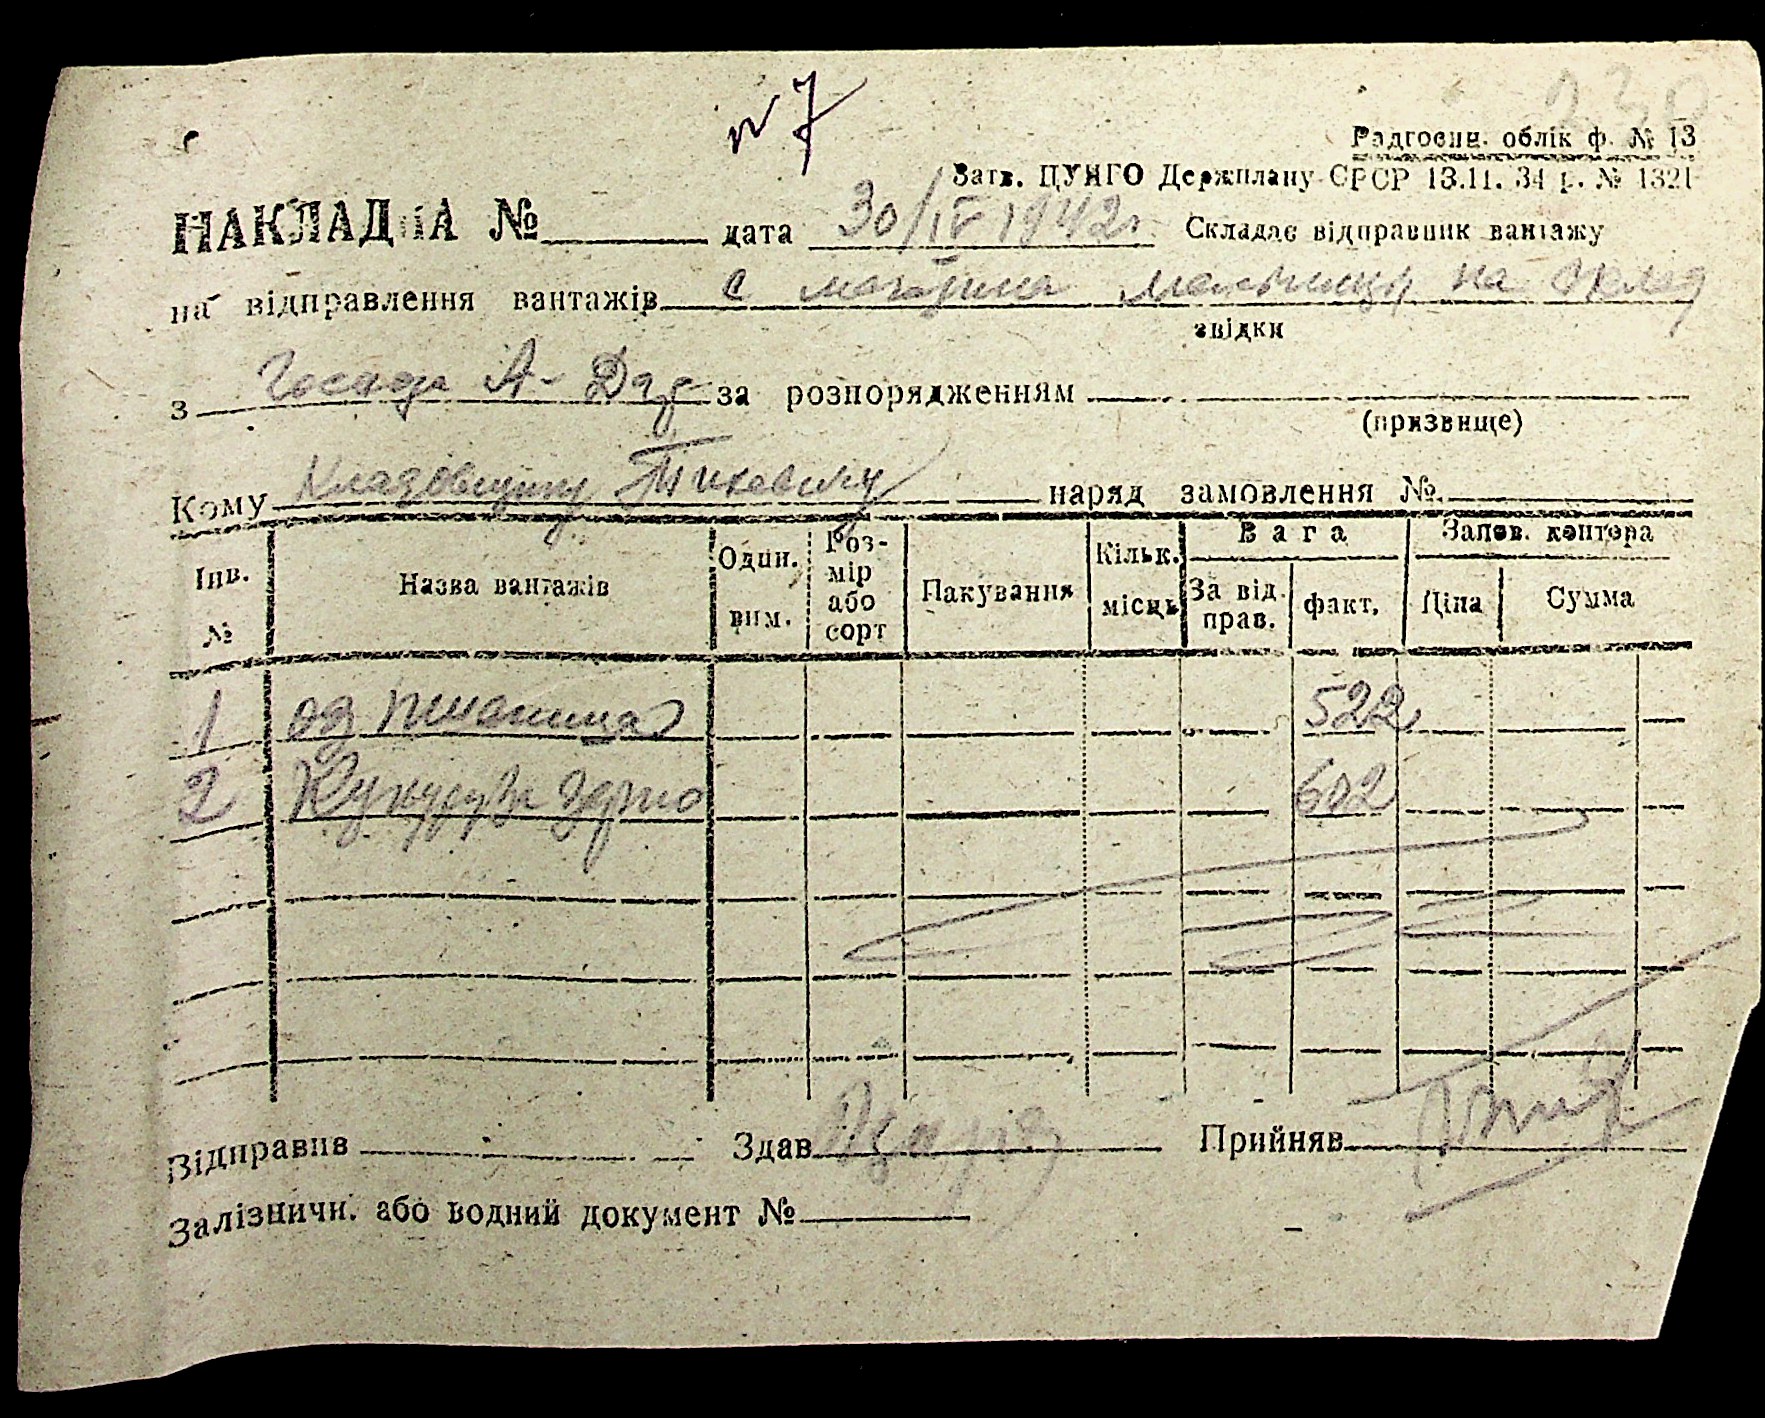 № 7
230
Радгоспн. облік ф. № 13
Затв. ЦУНГО Держплану СРСР 13.11. 34 р. № 1321
НАКЛАДНА № дата 30/IV 1942г. Складає відправник вантажу
на відправлення вантажів с магазина мельницы на склад
звідки
з за розпорядженням
(призвище)
Кому Кладовщику наряд замовлення №
Інв. № Назва вантажів Один. вим. Роз-мір або сорт Пакування Кільк. місць Вага За від прав. факт. Запов. контора Ціна Сумма
1 оз пшеница 522
2 Кукуруза зерно 602
Відправив Здав Прийняв
Залізничн. або водний документ №